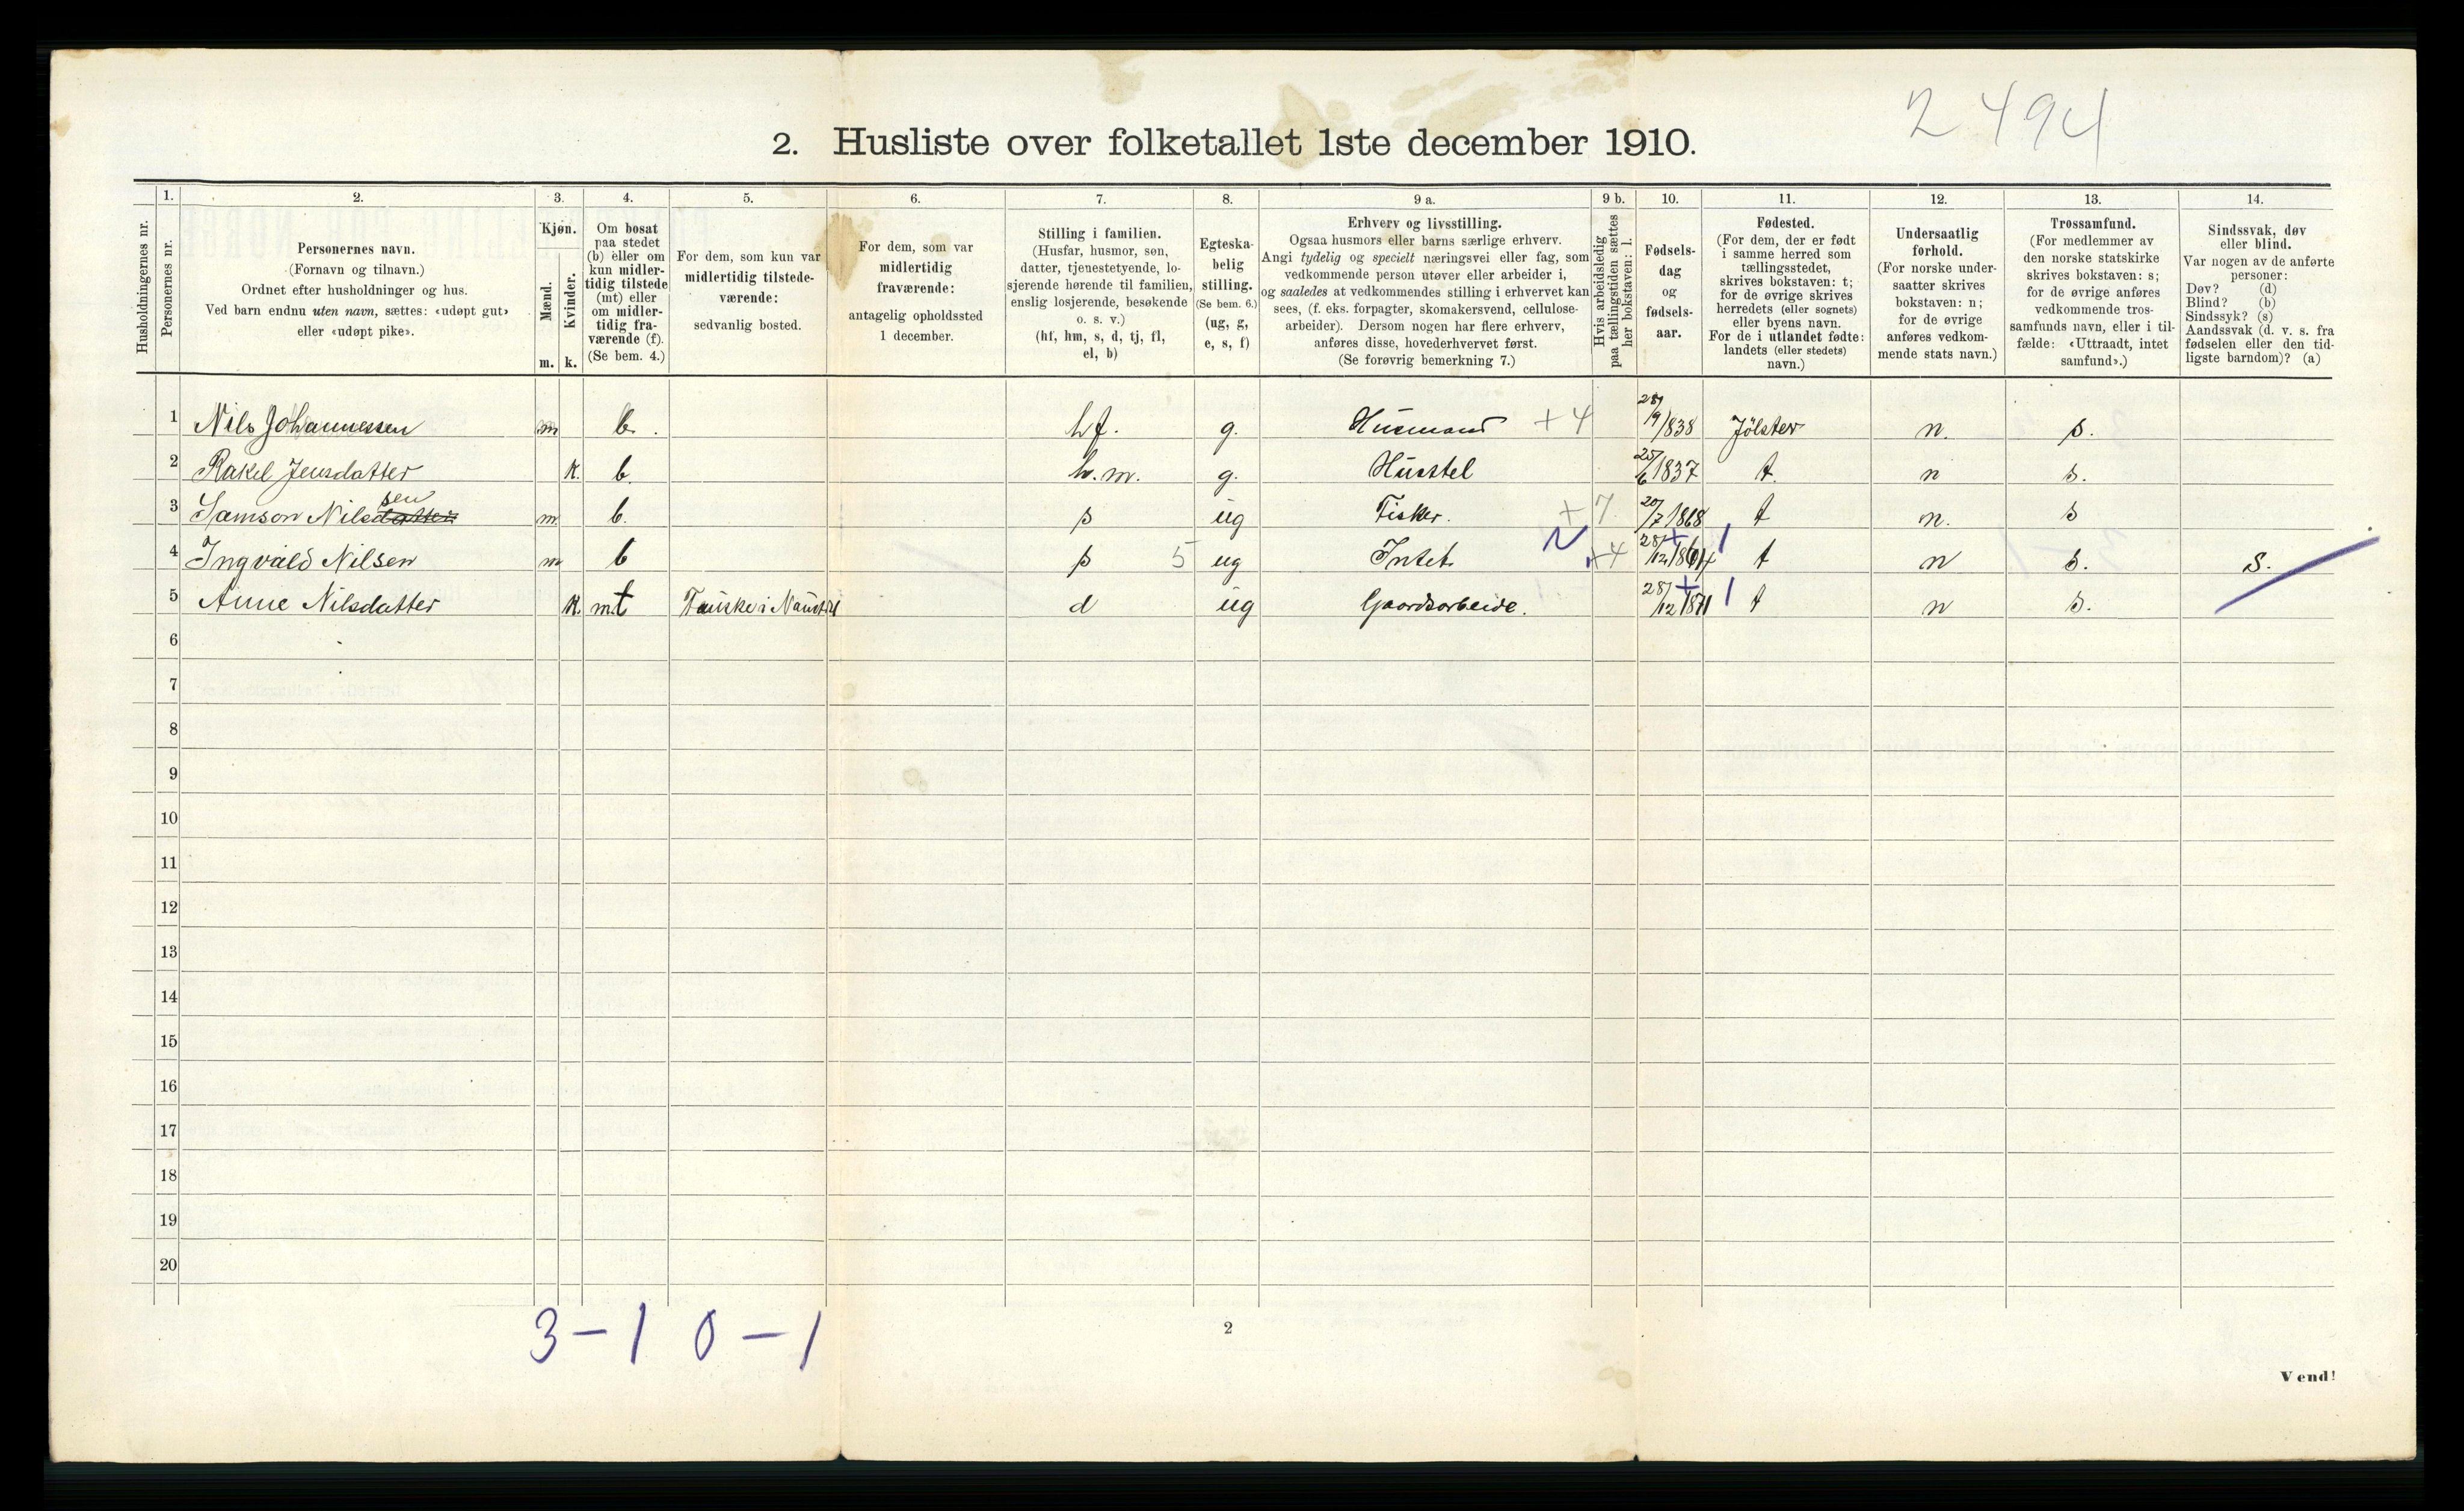 2494
2. Husliste over folketallet 1ste december 1910.
Husholdningernes nr.
1.
Personernes nr.
2.
Personernes navn.
(Fornavn og tilnavn.)
Ordnet efter husholdninger og hus.
Ved barn endnu uten navn, sættes: «udøpt gut»
eller «udøpt pike».
3.
Kjøn.
Mænd.
Kvinder.
m. k.
4.
Om bosat
paa stedet
(b) eller om
kun midler-
tidig tilstede
(mt) eller
om midler-
tidig fra-
værende (f).
(Se bem. 4.)
5.
For dem, som kun var
midlertidig tilstede-
værende:
sedvanlig bosted.
6.
For dem, som var
midlertidig
fraværende:
antagelig opholdssted
1 december.
7.
Stilling i familien.
(Husfar, husmor, søn,
datter, tjenestetyende, lo-
sjerende hørende til familien,
enslig losjerende, besøkende
o. s. v.)
(hf, hm, s, d, tj, fl,
el, b)
8.
Egteska-
belig
stilling.
(Se bem. 6.)
(ug, g,
e, s, f)
9 a.
Erhverv og livsstilling.
Ogsaa husmors eller barns særlige erhverv.
Angi tydelig og specielt næringsvei eller fag, som
vedkommende person utøver eller arbeider i,
og saaledes at vedkommendes stilling i erhvervet kan
sees, (f. eks. forpagter, skomakersvend, cellulose-
arbeider). Dersom nogen har flere erhverv,
anføres disse, hovederhvervet først.
(Se forøvrig bemerkning 7.)
9 b.
Hvis arbeidsledig
paa tællingstiden sættes
her bokstaven: l.
10.
Fødsels-
dag
og
fødsels-
aar.
11.
Fødested.
(For dem, der er født
i samme herred som
tællingsstedet,
skrives bokstaven: t;
for de øvrige skrives
herredets (eller sognets)
eller byens navn.
For de i utlandet fødte:
landets (eller stedets)
navn.)
12.
Undersaatlig
forhold.
(For norske under-
saatter skrives
bokstaven: n;
for de øvrige
anføres vedkom-
mende stats navn.)
13.
Trossamfund.
(For medlemmer av
den norske statskirke
skrives bokstaven: s;
for de øvrige anføres
vedkommende tros-
samfunds navn, eller i til-
fælde: «Uttraadt, intet
samfund».)
14.
Sindssvak, døv
eller blind.
Var nogen av de anførte
personer:
Døv? (d)
Blind? (b)
Sindssyk? (s)
Aandssvak (d. v. s. fra
fødselen eller den tid-
ligste barndom)? (a)
1 Nils Johannessen m b. hf. g. Husmand +4 28/9 1838 Jölster n. s.
2 Rakel Jensdatter k. b. h.m. g. Husstel 25/6 1837 t. n s.
3 Samson Nilsdatter sen m. b. s ug Fisker. +7 20/7 1868 t n. s
4 Ingvald Nilsen m b s 5 ug Intet +4 t n s. S.
5 Anne Nilsdatter k. mt d ug Gaardsarbeide. 28/12 1871 1 t n s.
6
7
8
9
10
11
12
13
14
15
16
17
18
19
20
3 – 1 0 – 1
2
Vend!